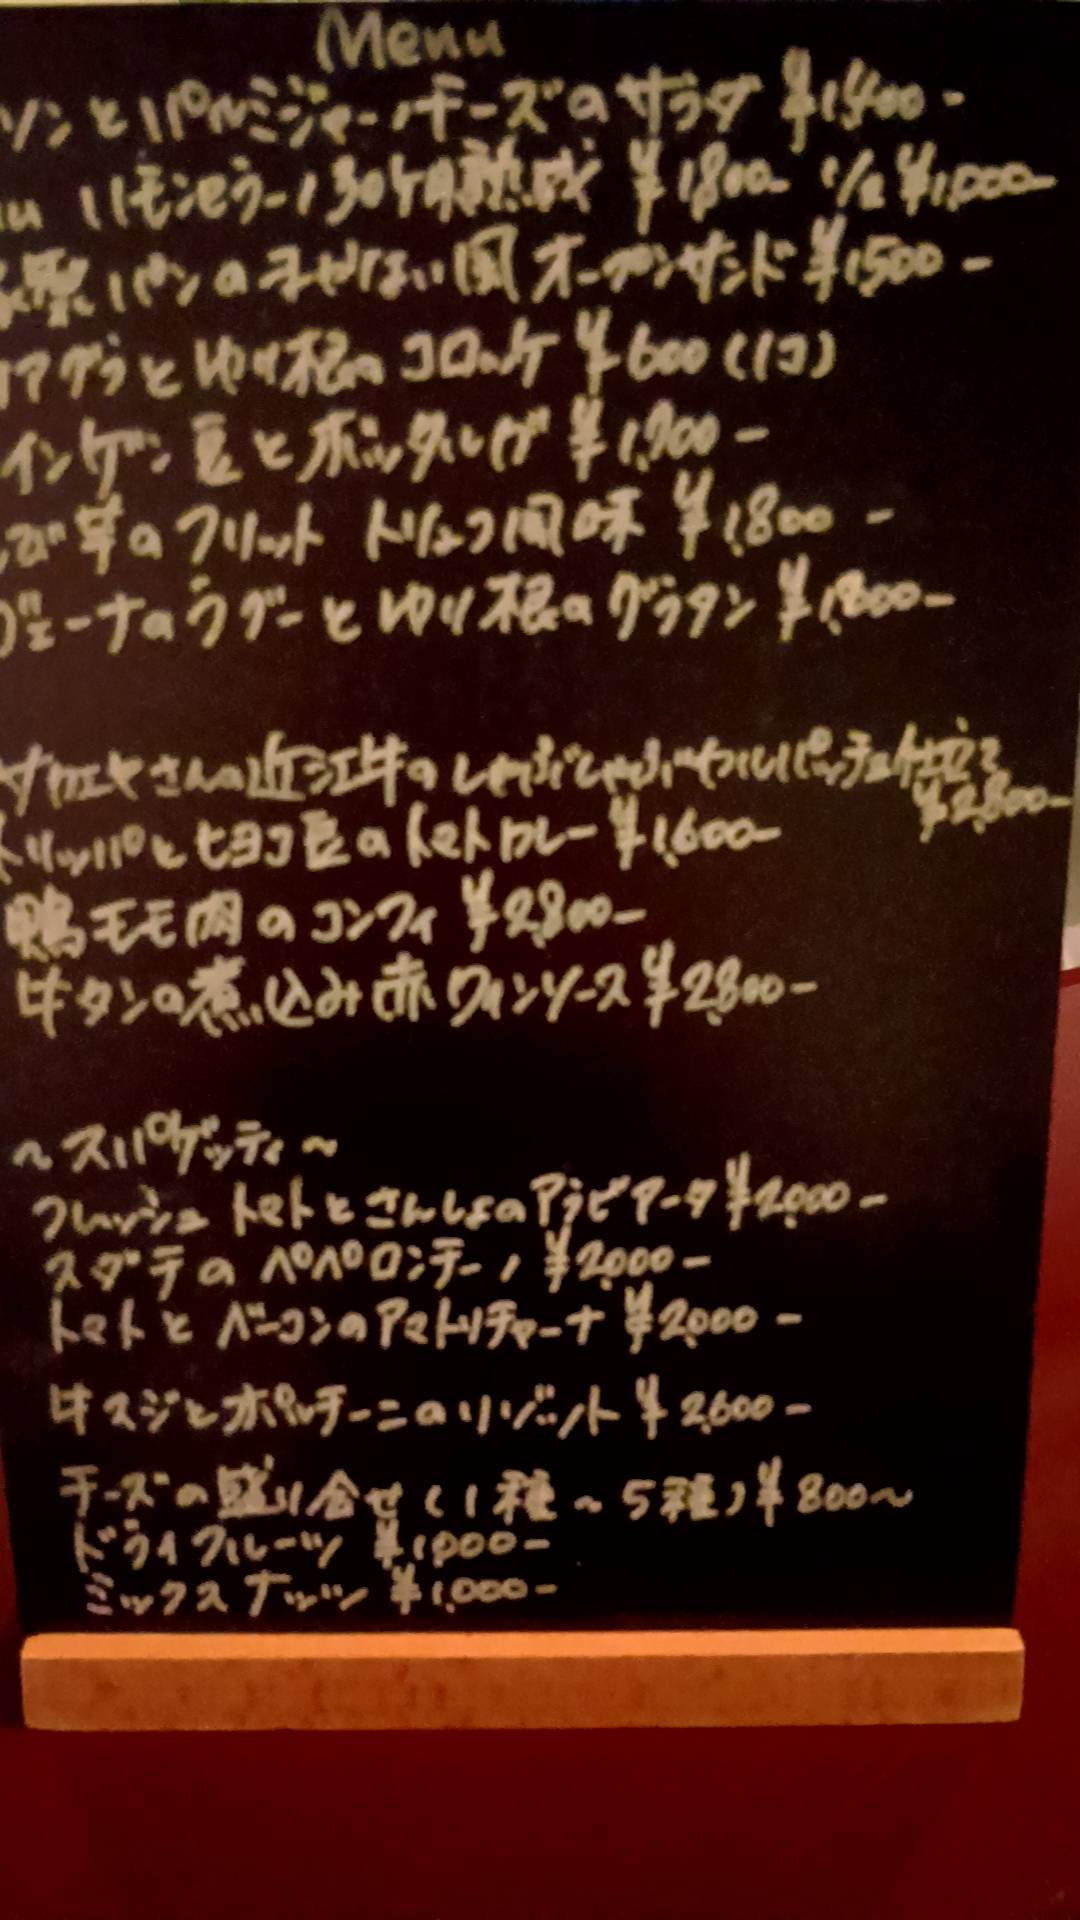 Menu
ソンとパルミジャーノチーズのサラダ ¥1,400-
リモンセラーノ30ケ月熟成 ¥1,800- 1/2 ¥1,000-
パンの オープンサンド ¥1,500-
アグラとゆり根のコロッケ ¥600(1コ)
インゲン豆と
のフリット トリュフ風味 ¥1,800-
ヴェーナのラグーとゆり根のグラタン
サカエヤさんの近江牛のしゃぶしゃぶカルパッチョ仕立て
¥2,800-
トリッパとヒヨコ豆のトマトカレー ¥1,600-
鴨モモ肉のコンフィ ¥2,800-
牛タンの煮込み赤ワインソース ¥2,800-
~スパゲッティ~
フレッシュトマトとさんしょのアラビアータ ¥2,000-
スダチのペペロンチーノ ¥2,000-
トマトとベーコンのアマトリチャーナ ¥2,000-
牛スジとポルチーニのリゾット ¥2,600-
チーズの盛り合せ(1種~5種)¥800~
ドライフルーツ ¥1,000-
ミックスナッツ ¥1,000-